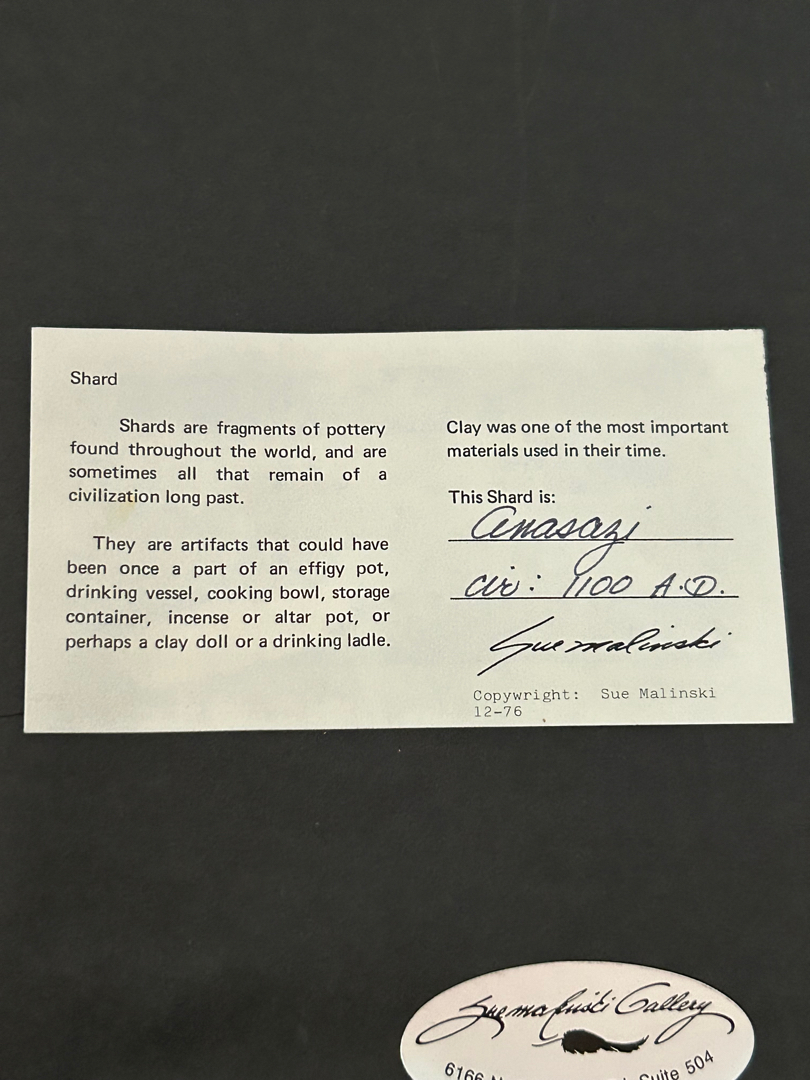 Shard
Shards are fragments of pottery
found throughout the world, and are
sometimes all that remain of a
civilization long past.
They are artifacts that could have
been once a part of an effigy pot,
drinking vessel, cooking bowl, storage
container, incense or altar pot, or
perhaps a clay doll or a drinking ladle.
Clay was one of the most important
materials used in their time.
This Shard is:
Anasazi
Cir: 1100 A.D.
Sue Malinski
Copywright: Sue Malinski
12-76
Sue Malinski Gallery
6166 Suite 504